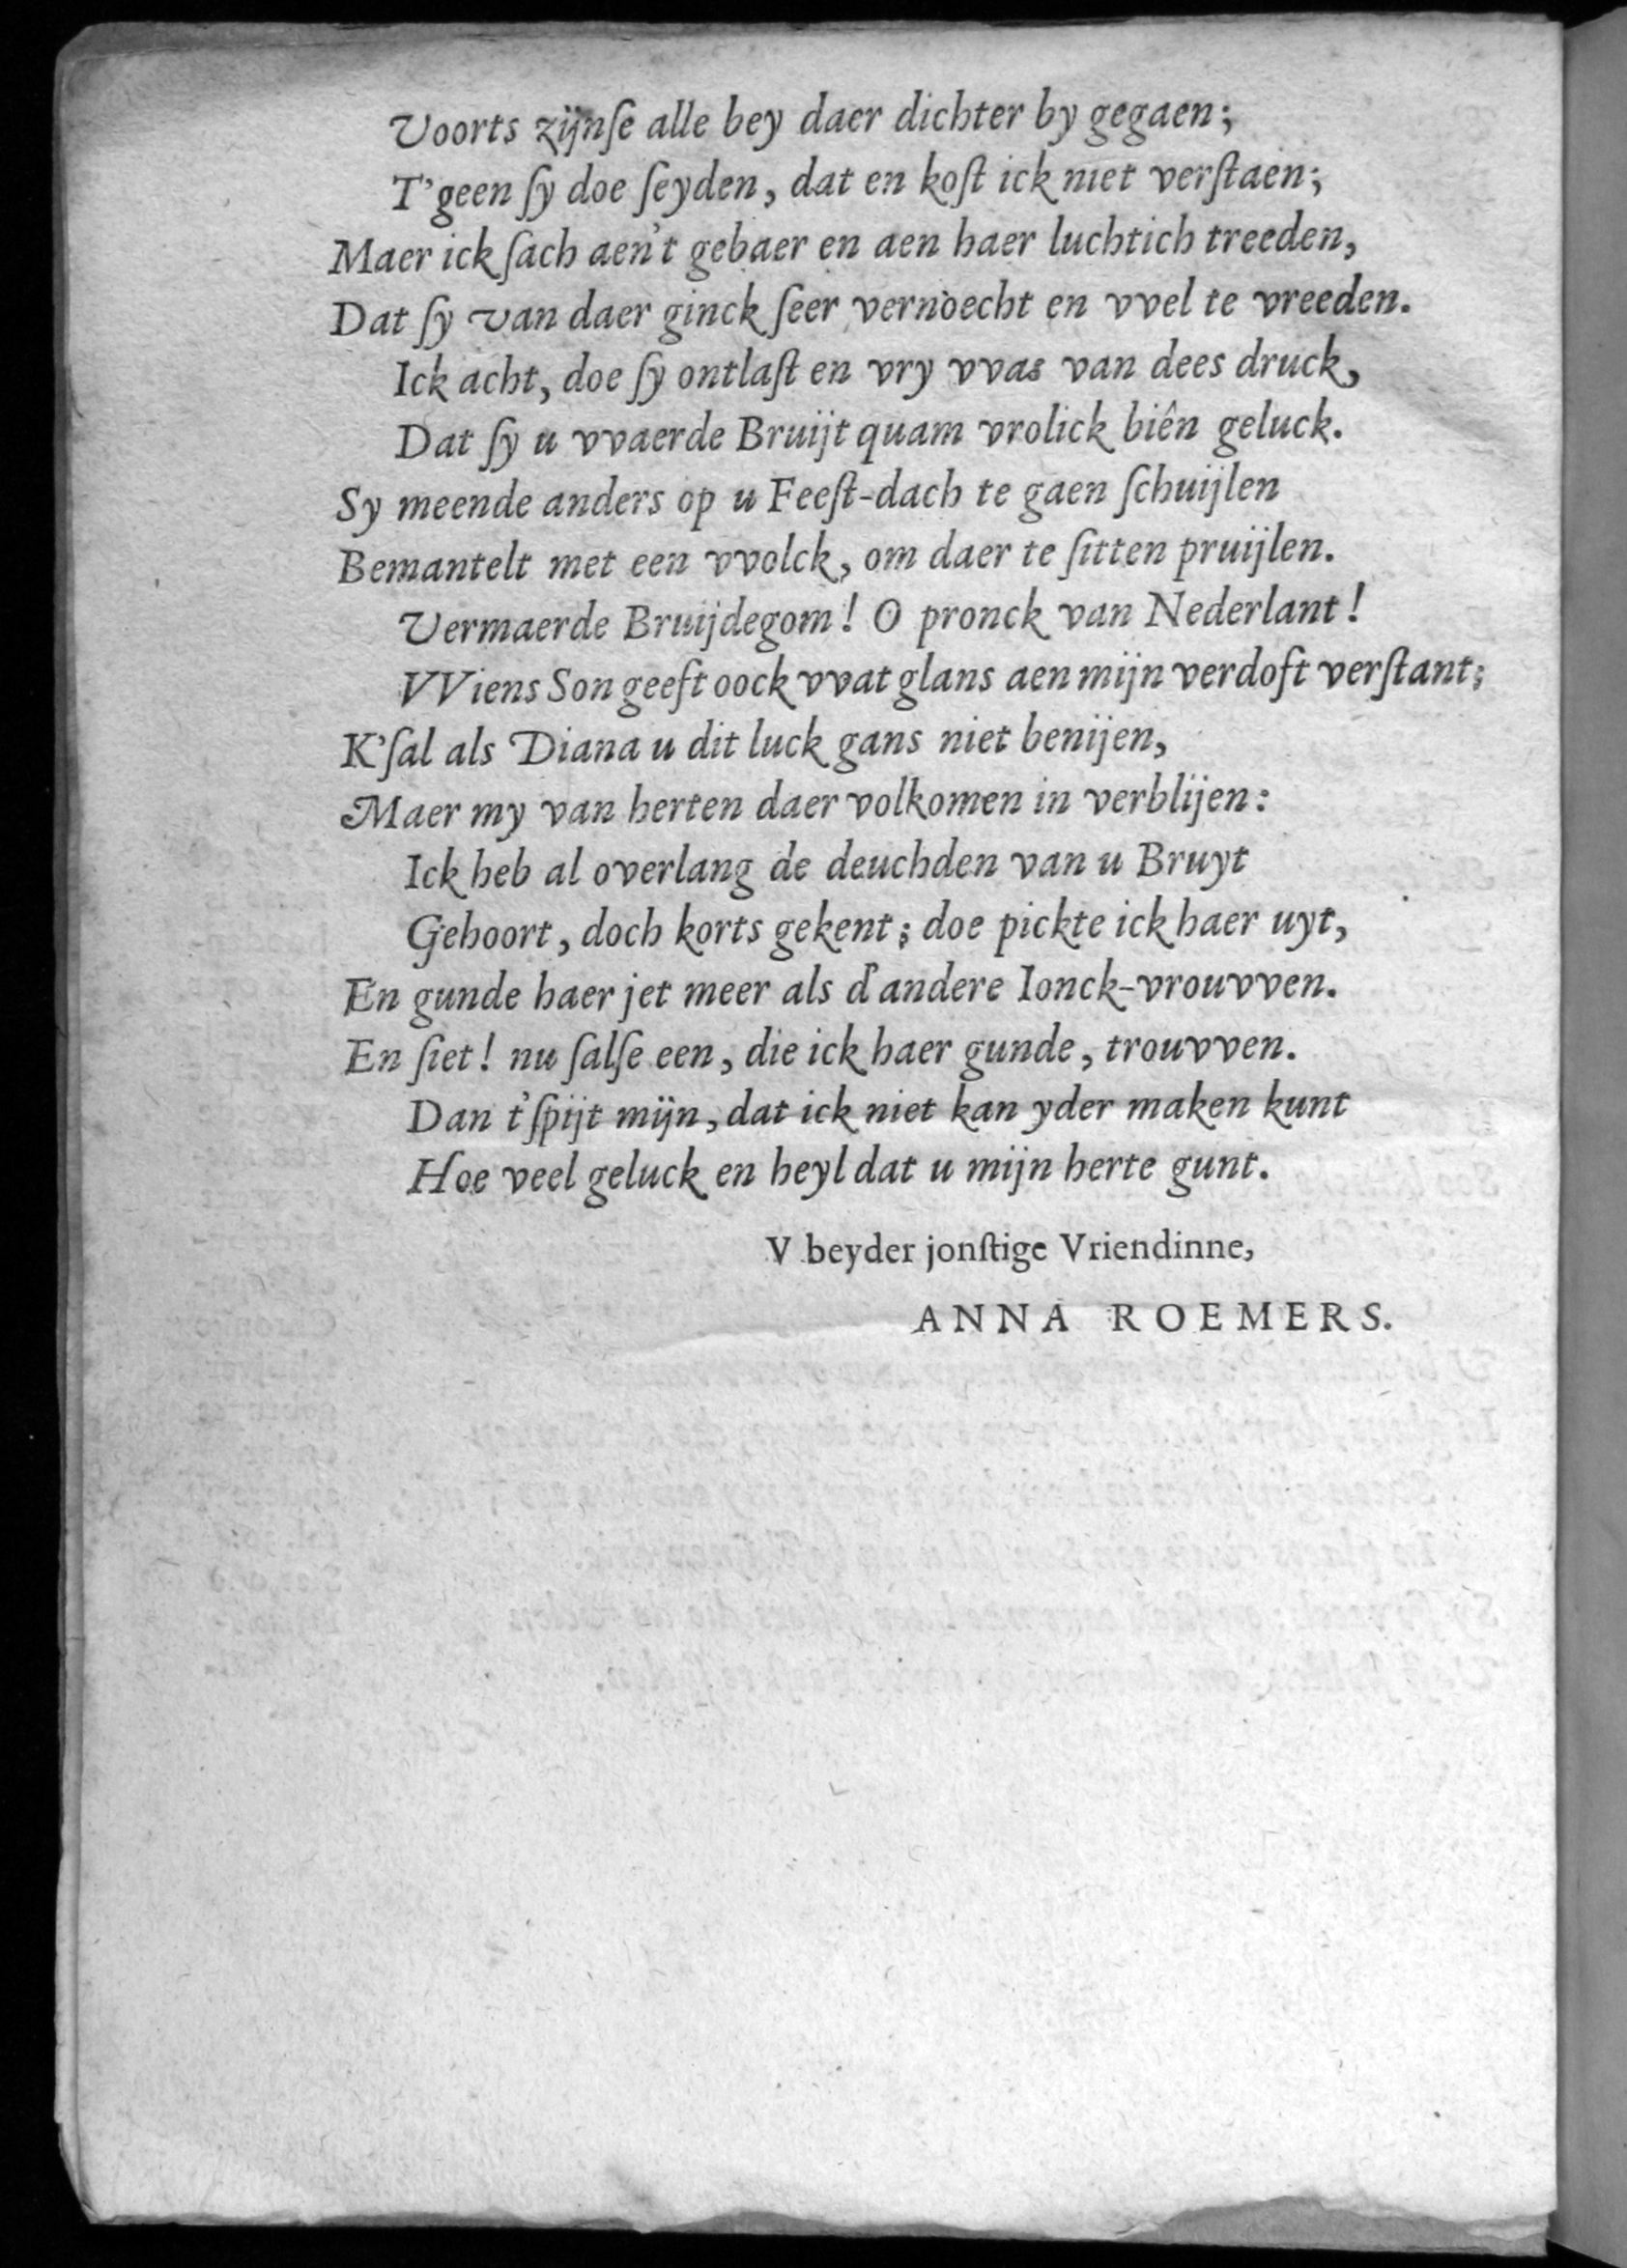 Voorts zijnſe alle bey daer dichter by gegaen;
T'geen ſy doe ſeyden, dat en koſt ick niet verſtaen;
Maer ick ſach aen't gebaer en aen haer luchtich treeden,
Dat ſy van daer ginck ſeer vernoecht en vvel te vreeden.
Ick acht, doe ſy ontlaſt en vry vvas van dees druck,
Dat ſy u vvaerde Bruijt quam vrolick biên geluck.
Sy meende anders op u Feeſt-dach te gaen ſchuijlen
Bemantelt met een vvolck, om daer te ſitten pruijlen.
Vermaerde Bruijdegom! O pronck van Nederlant!
VViens Son geeft oock vvat glans aen mijn verdoft verſtant;
K'ſal als Diana u dit luck gans niet benijen,
Maer my van herten daer volkomen in verblijen:
Ick heb al overlang de deuchden van u Bruyt
Gehoort, doch korts gekent; doe pickte ick haer uyt,
En gunde haer jet meer als d'andere Ionck-vrouvven.
En ſiet! nu ſalſe een, die ick haer gunde, trouvven.
Dan t'ſpijt mijn, dat ick niet kan yder maken kunt
Hoe veel geluck en heyl dat u mijn herte gunt.
V beyder jonſtige Vriendinne,
ANNA ROEMERS.